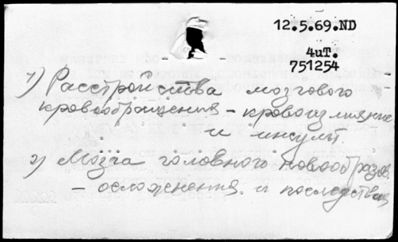 12.5.69.ND
4иТ.
751254
1) Расстройства мозгового
кровообращения - кровоизлияние
и инсульт.
2) Мозга головного новообразов.
- осложнения и последствия